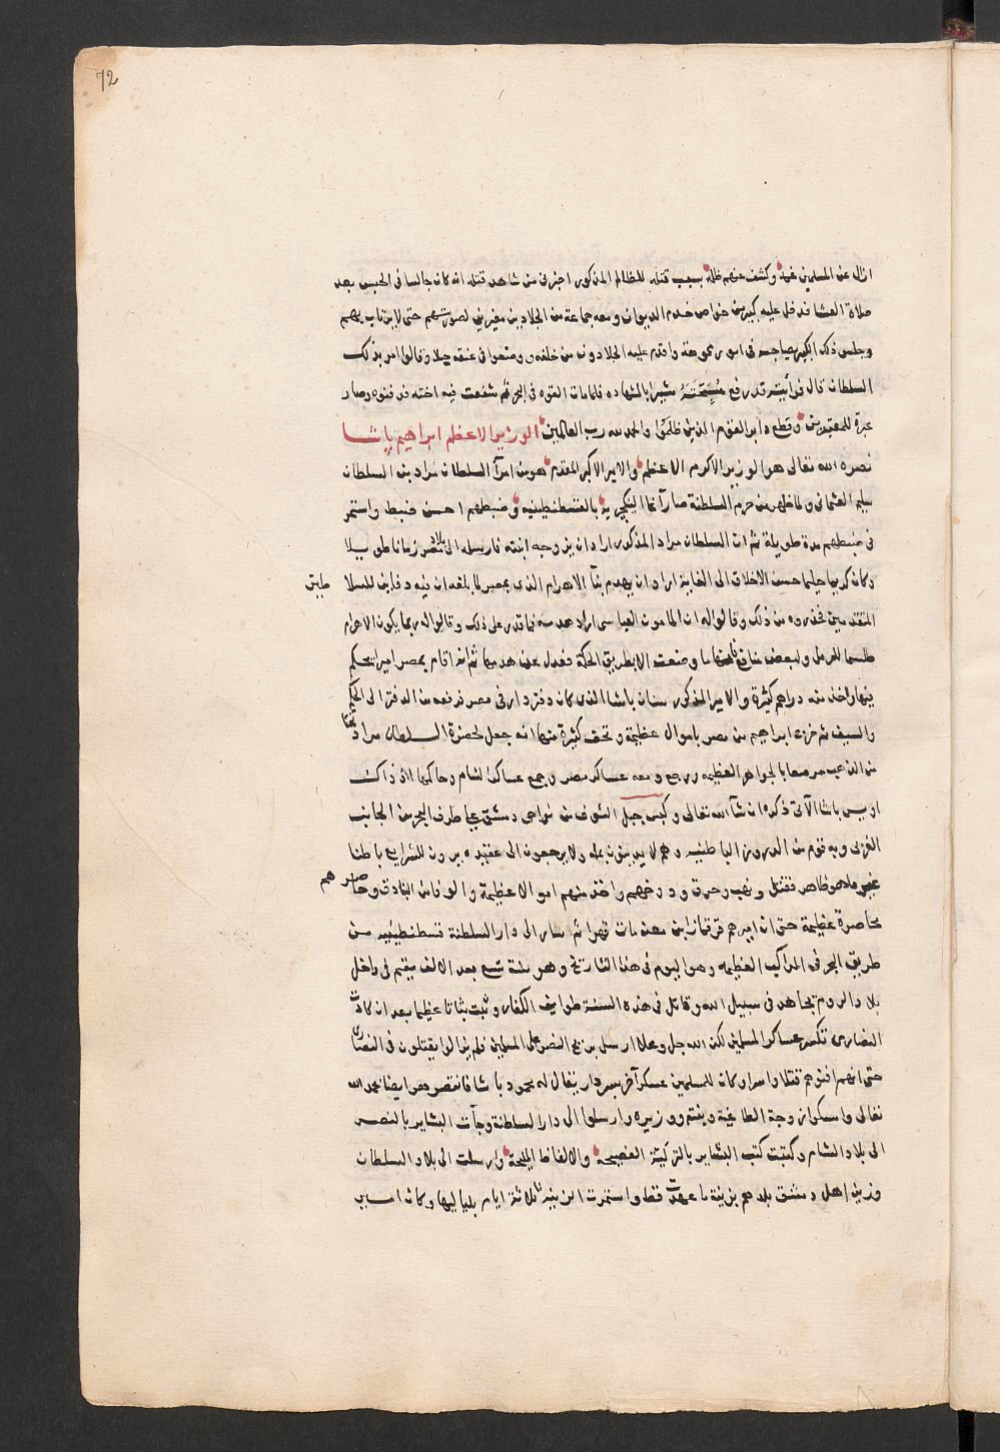 72
ازال عن المسلمين غمه وكشف عنهم ظله بسبب قتله للظالم المذكور اخبرني من شاهد قتله انه كان جالسا في الحبس بعد
صلاة العشا فدخل عليه كبير من خواص خدم الديوان ومعه جماعة من الجلادين مغيرين لصورتهم حتى لا يرتاب بهم
وجلس ذلك الكبير يصاحبه في امور مموهة واقدم عليه الجلادون من خلفه ووضعوا في عنقه حبلا وقالوا امر بذلك
السلطان قال فرأيته قد رفع مسبحته مشيرا بالشهاده فلما مات القوه في البحر ثم شفعت فيه اخته فدفنوه وصار
عبرة للمعتبرين وقطع دابر القوم الذين ظلموا والحمد لله رب العالمين الوزير الاعظم ابراهيم پاشا
نصره الله تعالى هو الوزير الاكرم الاعظم والامير الاكبر المقدم هو من امرآ السلطان مراد بن السلطان
سليم العثماني ولما ظهر من حرم السلطنة صار آغا الينكجرية بالقسطنطينيه وضبطهم احسن ضبط واستمر
في ضبطهم مدة طويلة ثم ان السلطان مراد المذكور اراد ان يزوجه ابنته فارسله الى بلاد مصر زمانا طويلا
وكان كريما حليما حسن الاخلاق الى الغاية اراد ان يهدم بنآ الاهرام الذي بمصر لما بلغه ان فيه دفاين للسلاطين
المتقدمين فحذروه من ذلك وقالوا له ان المامون العباسي اراد هدمه فما قدر على ذلك وقالوا له ربما يكون الاهرام
طلسما للرمل ولبعض منافع فانها ما وضعت الا بطريق الحكمة فعدل عن هدمها ثم انه اقام بمصر اميرا يحكم
فيها واخذ منه دراهم كثيرة والامير المذكور سنان باشا الذي كان دفتردار في مصر فرفعه من الدفتر الى الحكم
والسيف ثم خرج ابراهيم من مصر باموال عظيمة وتحف كثيرة منها انه جعل لحضرة السلطان مراد تختا
من الذهب مرصعا بالجواهر العظيمه ورجع ومعه عساكر مصر وجمع عساكر الشام وحاكمها اذ ذاك
اويس باشا الآتي ذكره ان شآ الله تعالى وكبس جبل الشوف من نواحي دمشق مما يلي طرف البحر من الجانب
الغربي وبه قوم من الدروز الباطنيه وهم لا يدينون بملة ولا يرجعون الى عقيده يرون للشرايع باطنا
غير ما هو ظاهر فقتل ونهب وحرق ودورهم واخذ منهم اموالا عظيمة والوفا من البنادق وحاصرهم
محاصرة عظيمة حتى ان اميرهم قرقماز ابن معن مات قهرا ثم سار الى دار السلطنة قسطنطينيه من
طريق البحر في المراكب العظيمه وهو اليوم في هذا التاريخ وهو سنة تسع بعد الالف مقيم في داخل
بلاد الروم يجاهد في سبيل الله وقاتل في هذه السنة طوايف الكفار وثبت ثباتا عظيما بعد ان كادت
النصارى تكسر عساكر المسلمين لكن الله جل وعلا ارسل ريح النصر على المسلمين فلم يزالوا يقتلون في النصارى
حتى انهم افنوهم قتلا واسرا وكان للمسلمين عسكر آخر بسردار يقال له محمود باشا فانتصر هو ايضا بحمد الله
تعالى واسروا زوجة الطاغية وبنته ووزيره وارسلوا الى دار السلطنة وجآت البشاير بالنصر
الى بلاد الشام وكتبت كتب البشاير بالتركية الفصيحة والالفاظ المليحة وارسلت الى بلاد السلطان
وزين اهل دمشق بلدهم بزينة ما عهدت قط واستمرت الزينه ثلاثة ايام بلياليها وكان امير